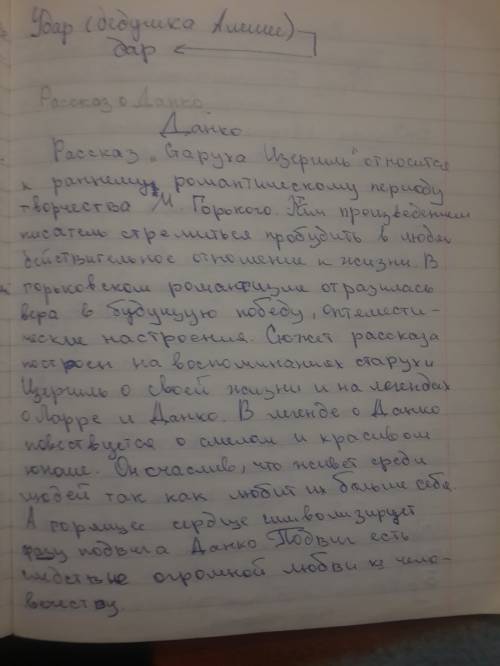 Удар (дедушка Алеши)
дар
Рассказ о Данко.
Данко.
Рассказ „Старуха Изергиль" относится
к раннему романтическому периоду
творчества М. Горького. произведением
писатель стремиться пробудить в людях
действительное отношение к жизни. В
горьковском романтизме отразилась
вера в будущую победу, оптемисти-
ческие настроения. Сюжет рассказа
построен на воспоминаниях старухи
Изергиль о своей жизни и на легендах
о Ларре и Данко. В легенде о Данко
повествуется о смелом и красивом
юноше. Он счаслив, что живёт среди
людей так как любит их больше себя.
А горящее сердце символизирует
подвига Данко Подвиг есть
следствие огромной любви к чело-
вечеству